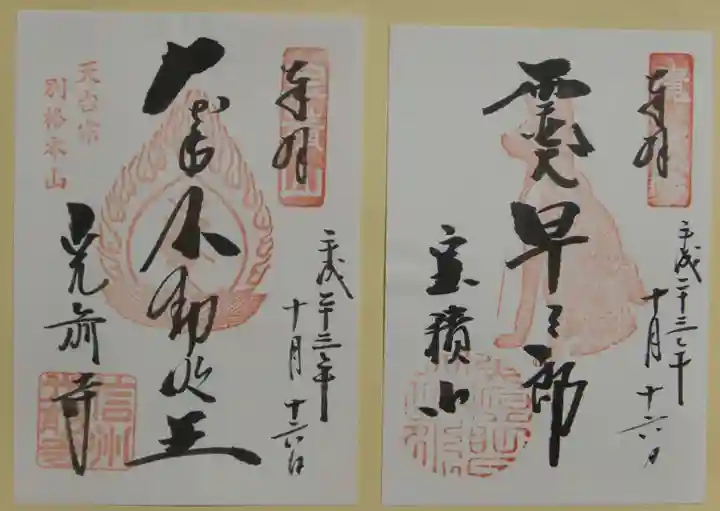 奉拝
平成二十三年
十月十六日
霊犬早太郎
宝積山
奉拝
平成二十三年
十月十六日
大聖不動明王
光前寺
天台宗
別格本山
信州